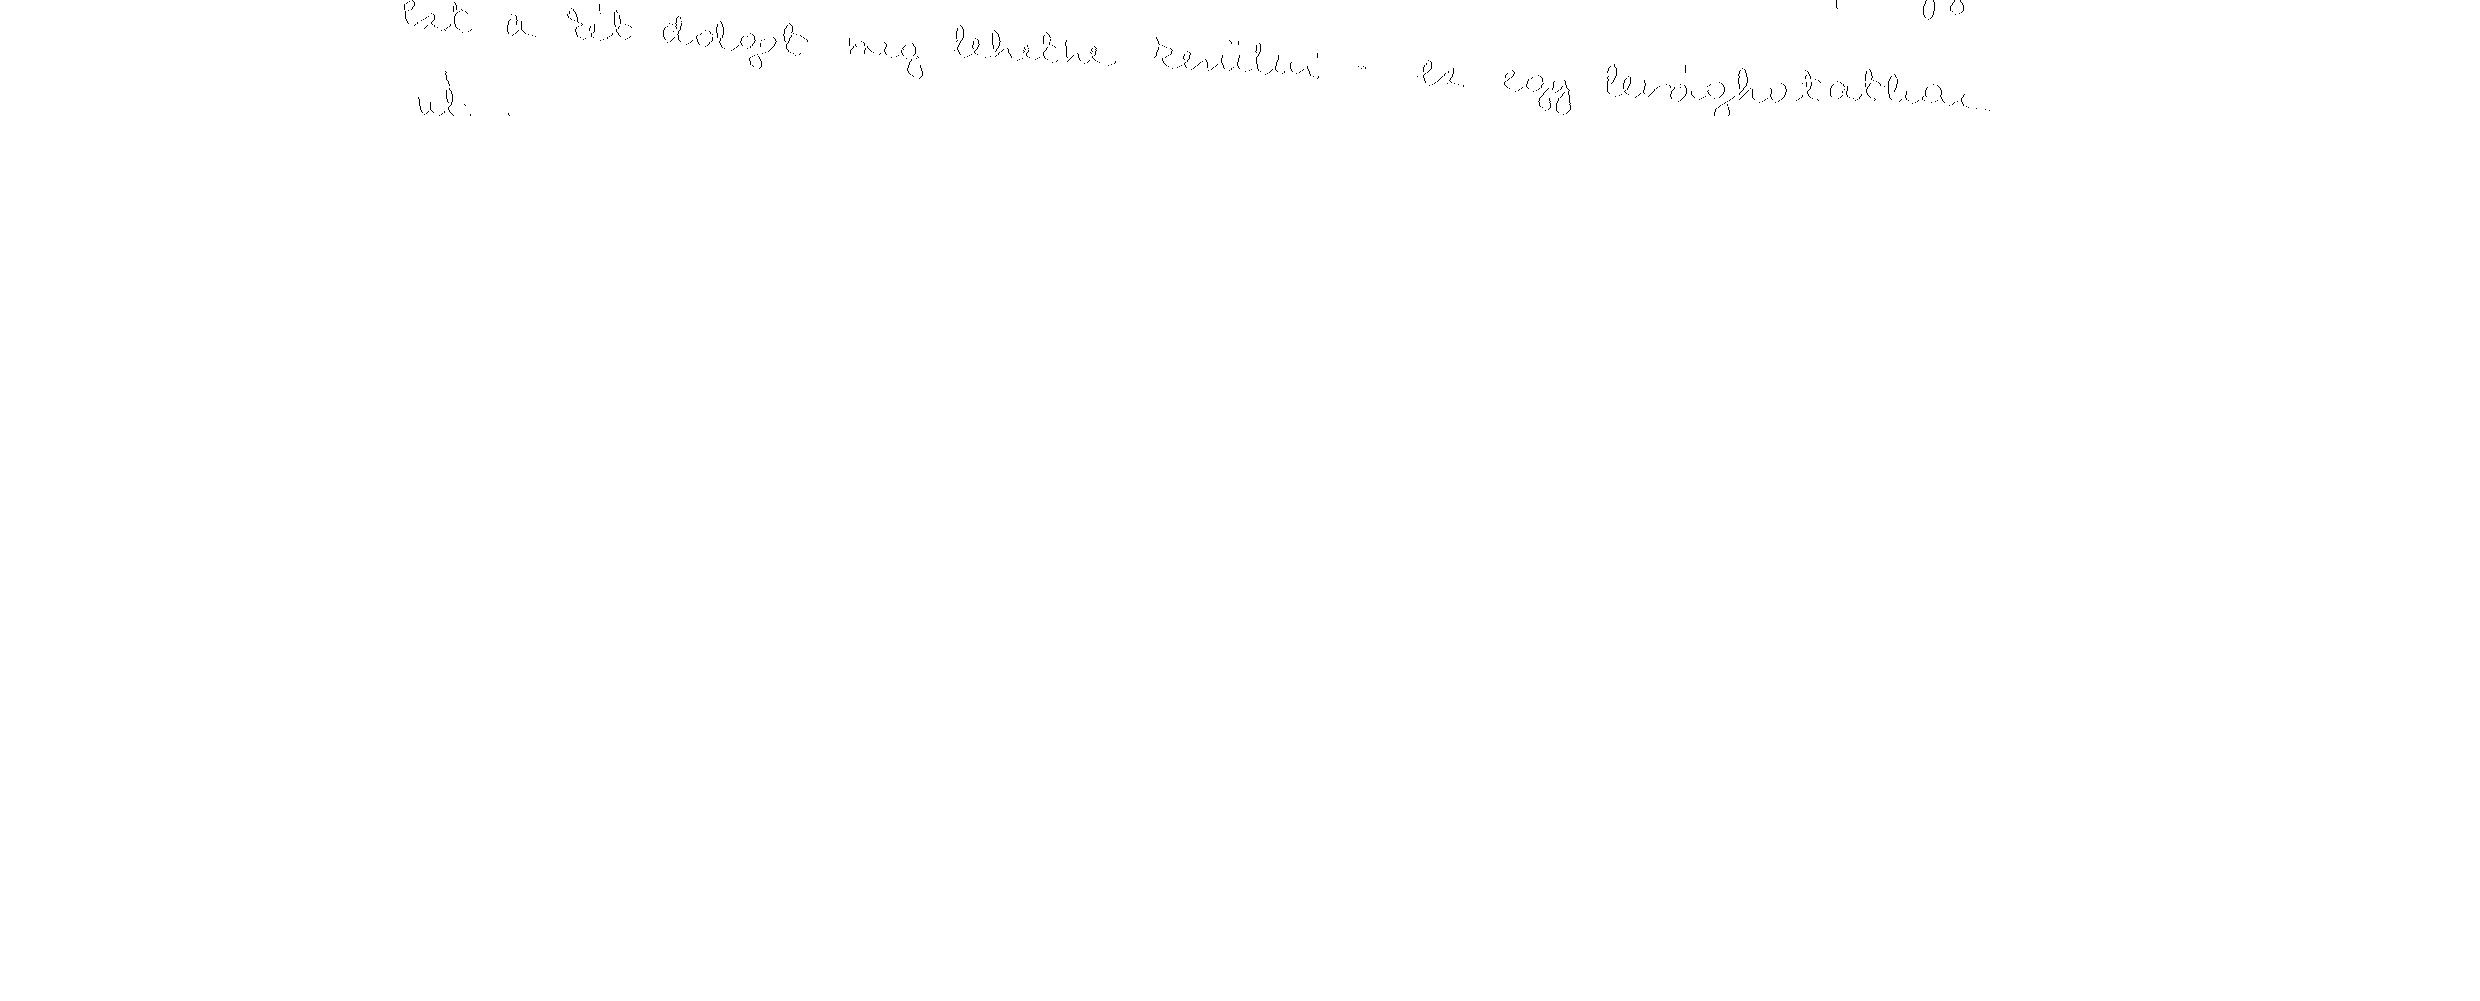 ezt a két dolgot meg lehetne kerülni - ez egy levághatatlan
út.